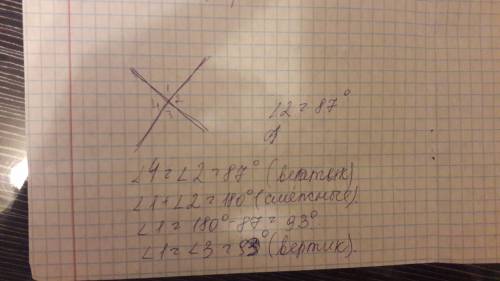 1
4 2
3
∠2 = 87°
∠4 = ∠2 = 87° (вертик)
∠1 + ∠2 = 180° (смежные).
∠1 = 180° - 87 = 93°
∠1 = ∠3 = 93° (вертик).